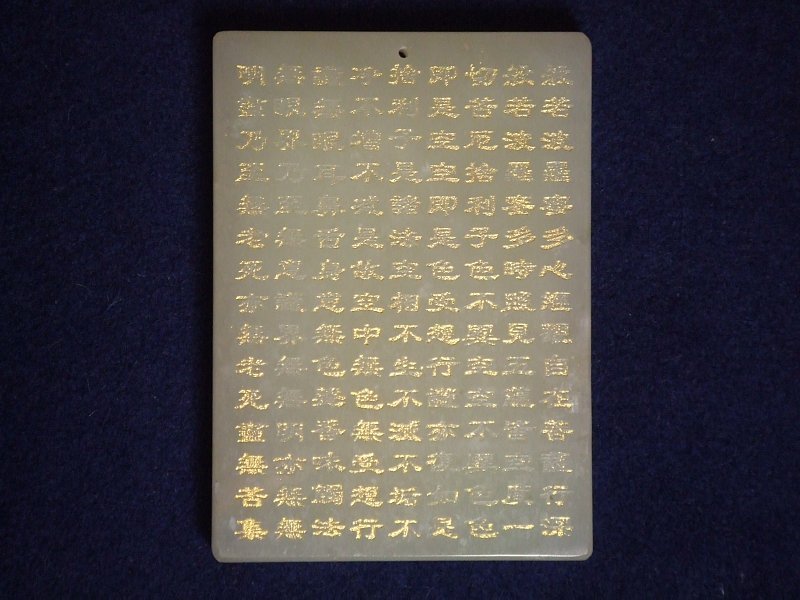 般若波羅蜜多心經觀自在菩薩行深
般若波羅蜜多時照見五蘊皆空度一
切苦厄捨利子色不異空空不異色色
即是空空即是色受想行識亦復如是
捨利子是諸法空相不生不滅不垢不
淨不增不減是故空中無色無受想行
識無眼耳鼻舌身意無色聲香味觸法
無眼界乃至無意識界無無明亦無無
明盡乃至無老死亦無老死盡無苦集